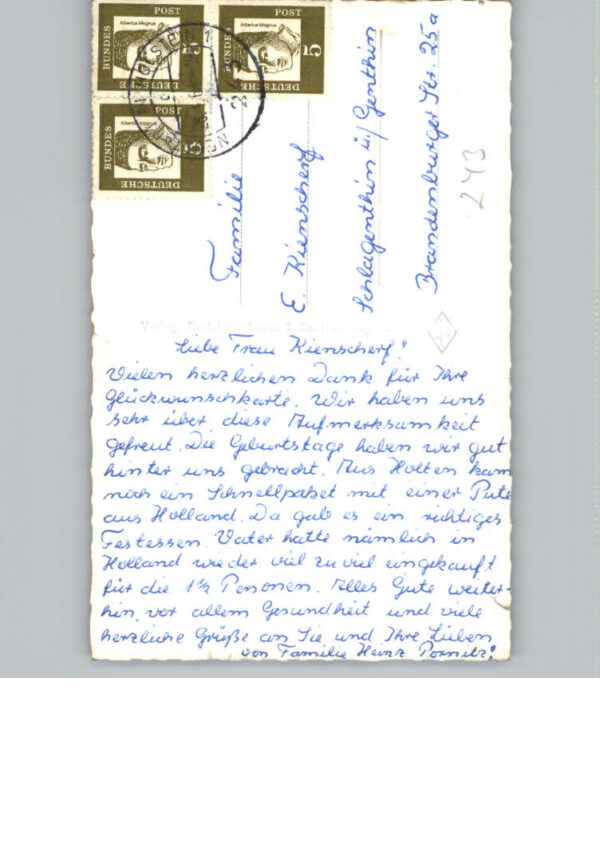 Albertus Magnus
DEUTSCHE
BUNDES
POST
5
Albertus Magnus
DEUTSCHE
BUNDES
POST
5
Albertus Magnus
DEUTSCHE
BUNDES
POST
5
Familie
E. Kienscherf
Schlagenthin ü/Genthin
Brandenburger Str. 25a
243
Liebe Frau Kienscherf!
Vielen herzlichen Dank für Ihre
Glückwunschkarte. Wir haben uns
sehr über diese Aufmerksamkeit
gefreut. Die Geburtstage haben wir gut
hinter uns gebracht. Aus Holten kam
noch ein Schnellpaket mit einer Pute
aus Holland. Da gab es ein richtiges
Festessen. Vater hatte nämlich in
Holland wieder viel zu viel eingekauft
für die 1½ Personen. Alles Gute weiter-
hin, vor allem Gesundheit und viele
herzliche Grüße an Sie und Ihre Lieben
von Familie Heinz Pornitz!